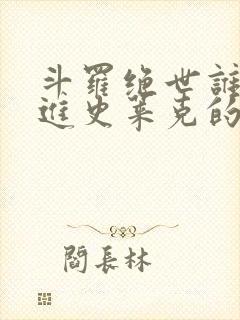 斗羅絕世誰
進史萊克的
閻長林